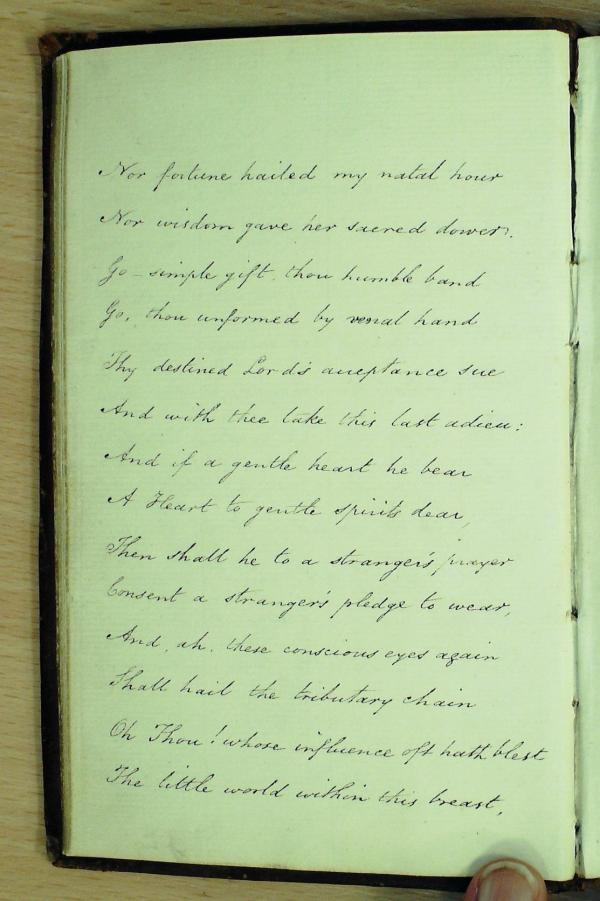 Nor fortune hailed my natal hour
Nor wisdom gave her sacred dower.
Go - simple gift. thou humble band
Go, thou unformed by venal hand
Thy destined Lord's acceptance sue
And with thee take this last adieu:
And if a gentle heart he bear
A Heart to gentle spirits dear,
Then shall he to a stranger's prayer
Consent a stranger's pledge to wear,
And, ah. these conscious eyes again
Shall hail the tributary chain
Oh Thou! whose influence oft hath blest
The little world within this breast,